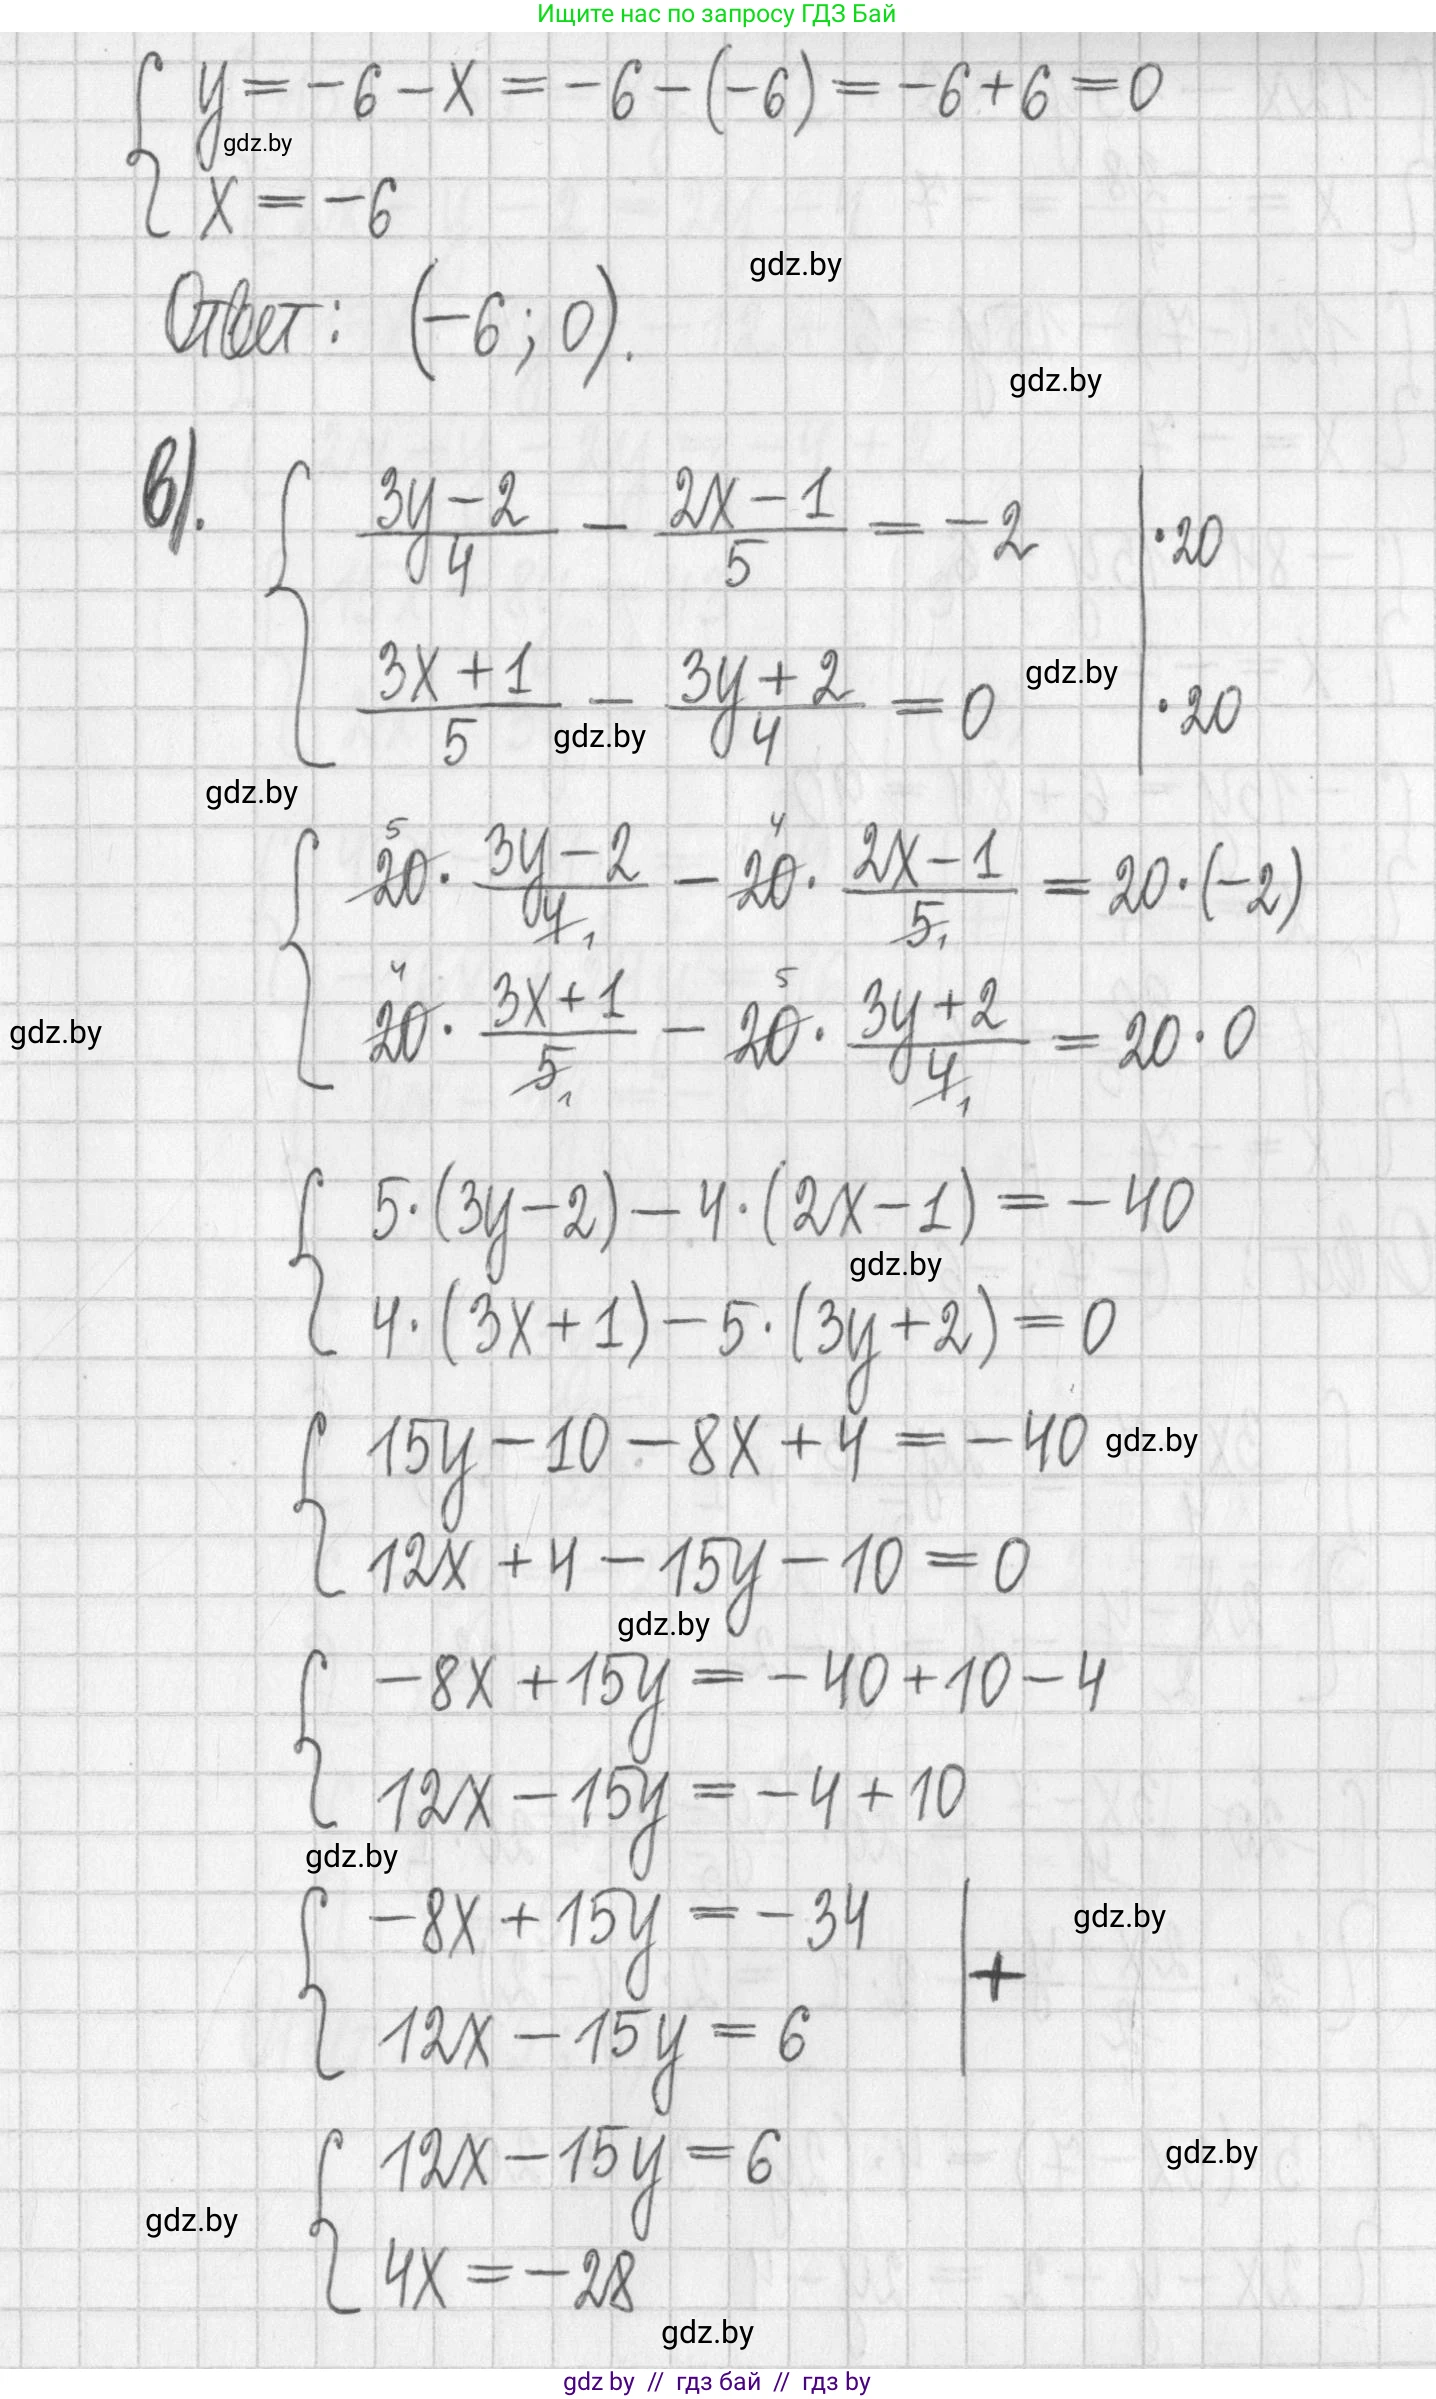 Ищите нас по запросу ГДЗ Бай
y = -6 - x = -6 - (-6) = -6 + 6 = 0
gdz.by
x = -6
gdz.by
Ответ: (-6; 0).
gdz.by
в).
(3y - 2)/4 - (2x - 1)/5 = -2 | ·20
(3x + 1)/5 - (3y + 2)/4 = 0 | ·20
gdz.by
gdz.by
gdz.by
20⁵ · (3y - 2)/4₁ - 20⁴ · (2x - 1)/5₁ = 20 · (-2)
20⁴ · (3x + 1)/5₁ - 20⁵ · (3y + 2)/4₁ = 20 · 0
gdz.by
5 · (3y - 2) - 4 · (2x - 1) = -40
gdz.by
4 · (3x + 1) - 5 · (3y + 2) = 0
15y - 10 - 8x + 4 = -40
gdz.by
12x + 4 - 15y - 10 = 0
gdz.by
-8x + 15y = -40 + 10 - 4
12x - 15y = -4 + 10
gdz.by
-8x + 15y = -34 | +
gdz.by
12x - 15y = 6
12x - 15y = 6
gdz.by
gdz.by
4x = -28
gdz.by
gdz by // гдз бай // гдз by